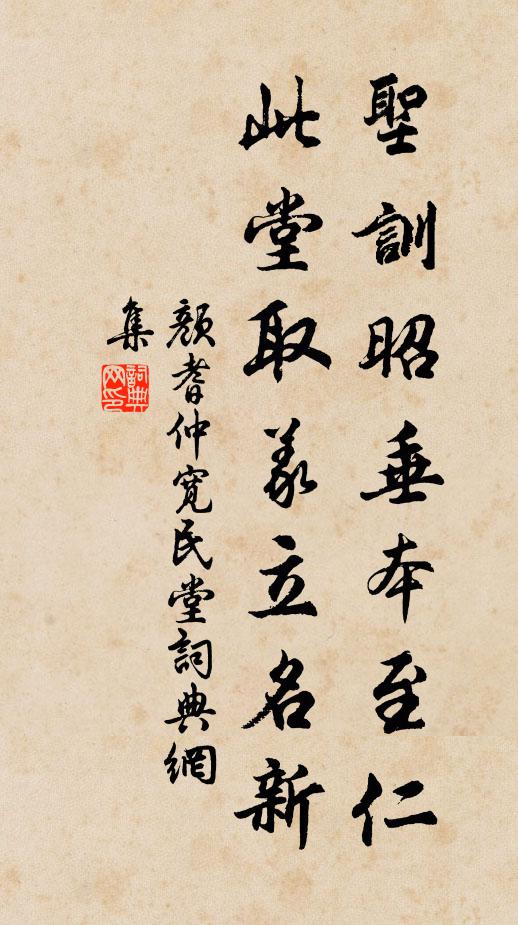 聖訓昭垂本至仁
此堂取義立名新
顏耆仲寬民堂詞典網
集
詞典
网印